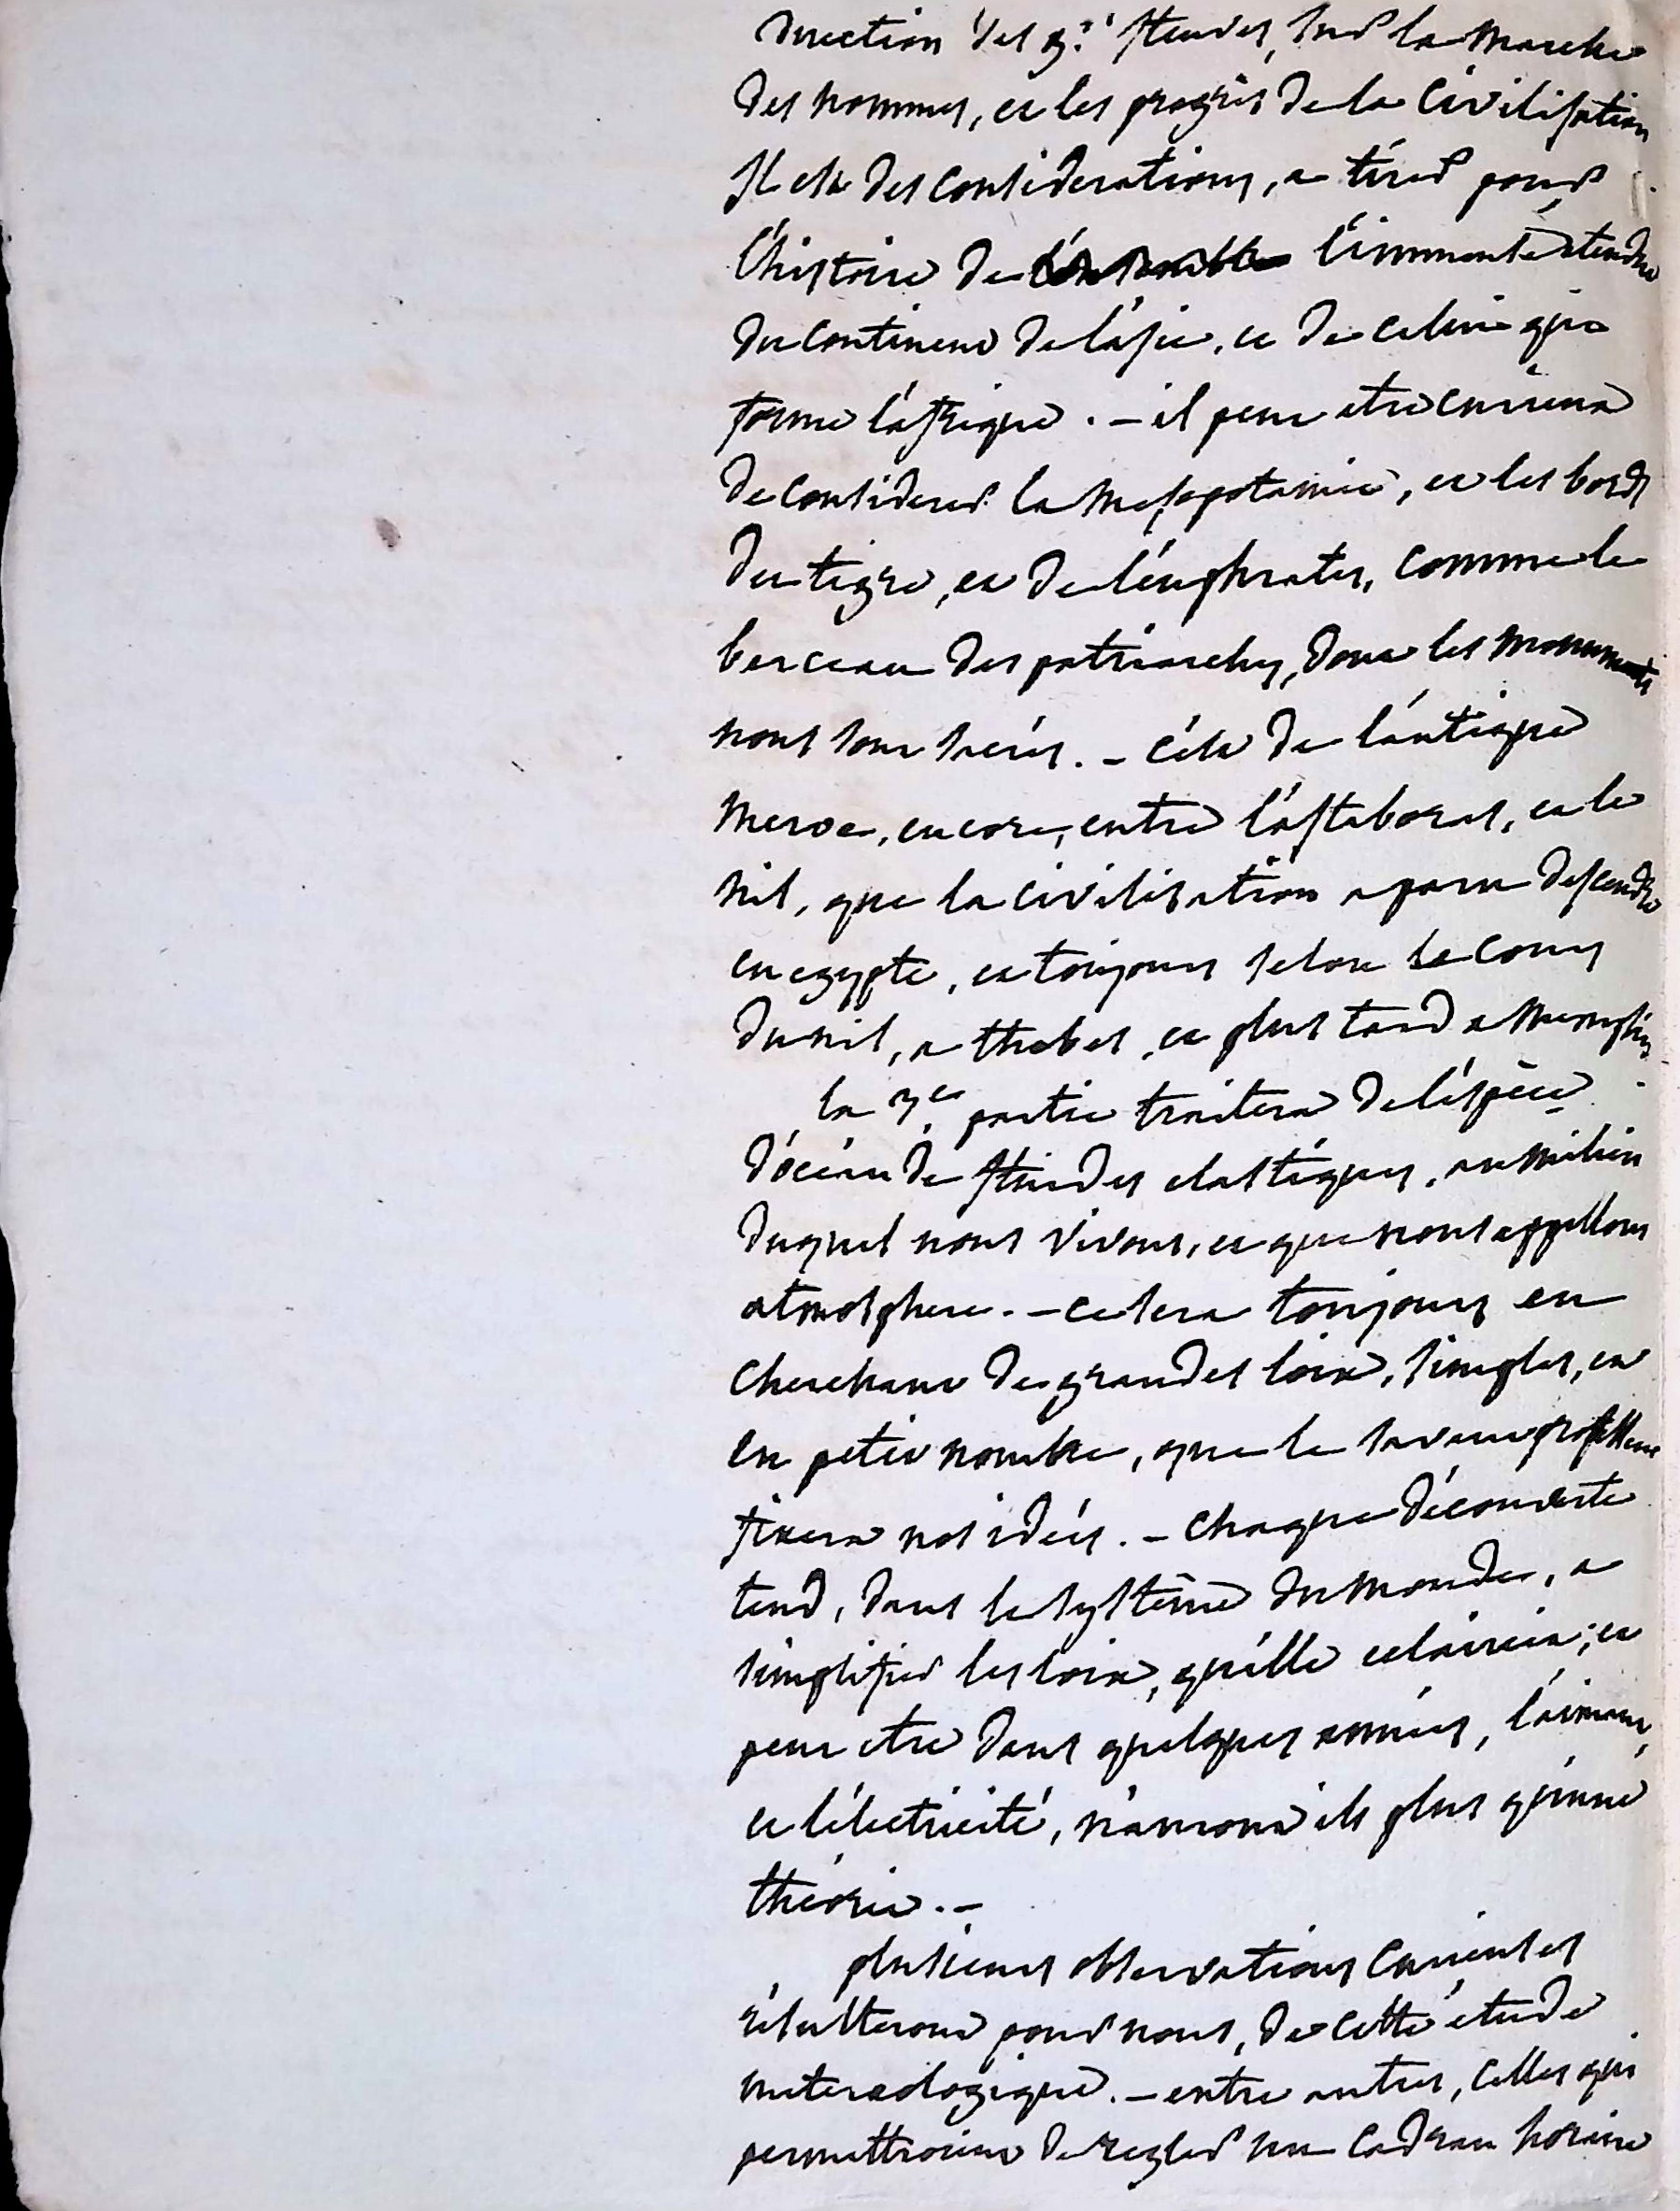 direction des gds fleuves, sur la marche
des hommes, et les progrès de la civilisation
Il est des considerations, a tirer pour
l'histoire de l'immense étendue
du continent de l'asie, et de celui qui
forme l'affrique. - il peut etre curieux
de considerer la mesopotamie, et les bords
du tigre, et de l'euphrates, comme le
berceau des patriarches, dont les monuments
nous sont sacrés. - C'est de l'antique
meroe, encore, entre l'astaboras, et le
nil, que la civilisation a paru descendre
en egypte, et toujours selon le cours
du nil, a thebes, et plus tard a memphis
la 3e. partie traitera de l'éspèce
d'océan de fluides elastiques, au milieu
duquel nous vivons, et que nous appellons
atmosphere. - ce sera toujours en
cherchant de grandes loix, simples, et
en petit nombre, que le savant professeur
fixera nos idées. - chaque découverte
tend, dans le système du monde, a
simplifier les loix, qu'elle eclaircit; et
peut etre dans quelques années, l'aimant,
et l'électricité, n'auront ils plus qu'une
théorie. -
plusieurs observations curieuses
résulteront pour nous, de cette étude
meteorologique. - entre autres, celles qui
permettroient de regler un cadran horaire